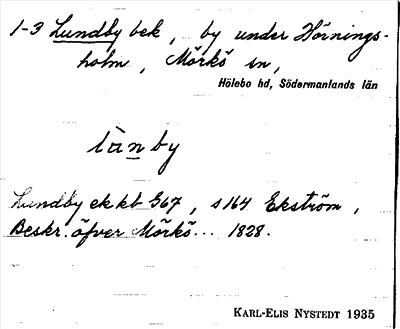 1-3 Lundby bek, by under Hörnings-
holm, Mörkö sn,
Hölebo hd, Södermanlands län
lànby
Lundby ekkb 567, s 164 Ekström,
Beskr. öfver Mörkö... 1828.
KARL-ELIS NYSTEDT 1935